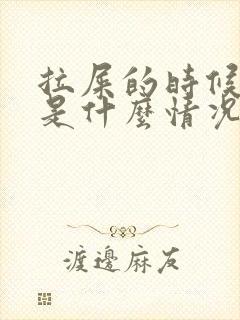 拉屎的時候
是什麼情況
渡邊麻友